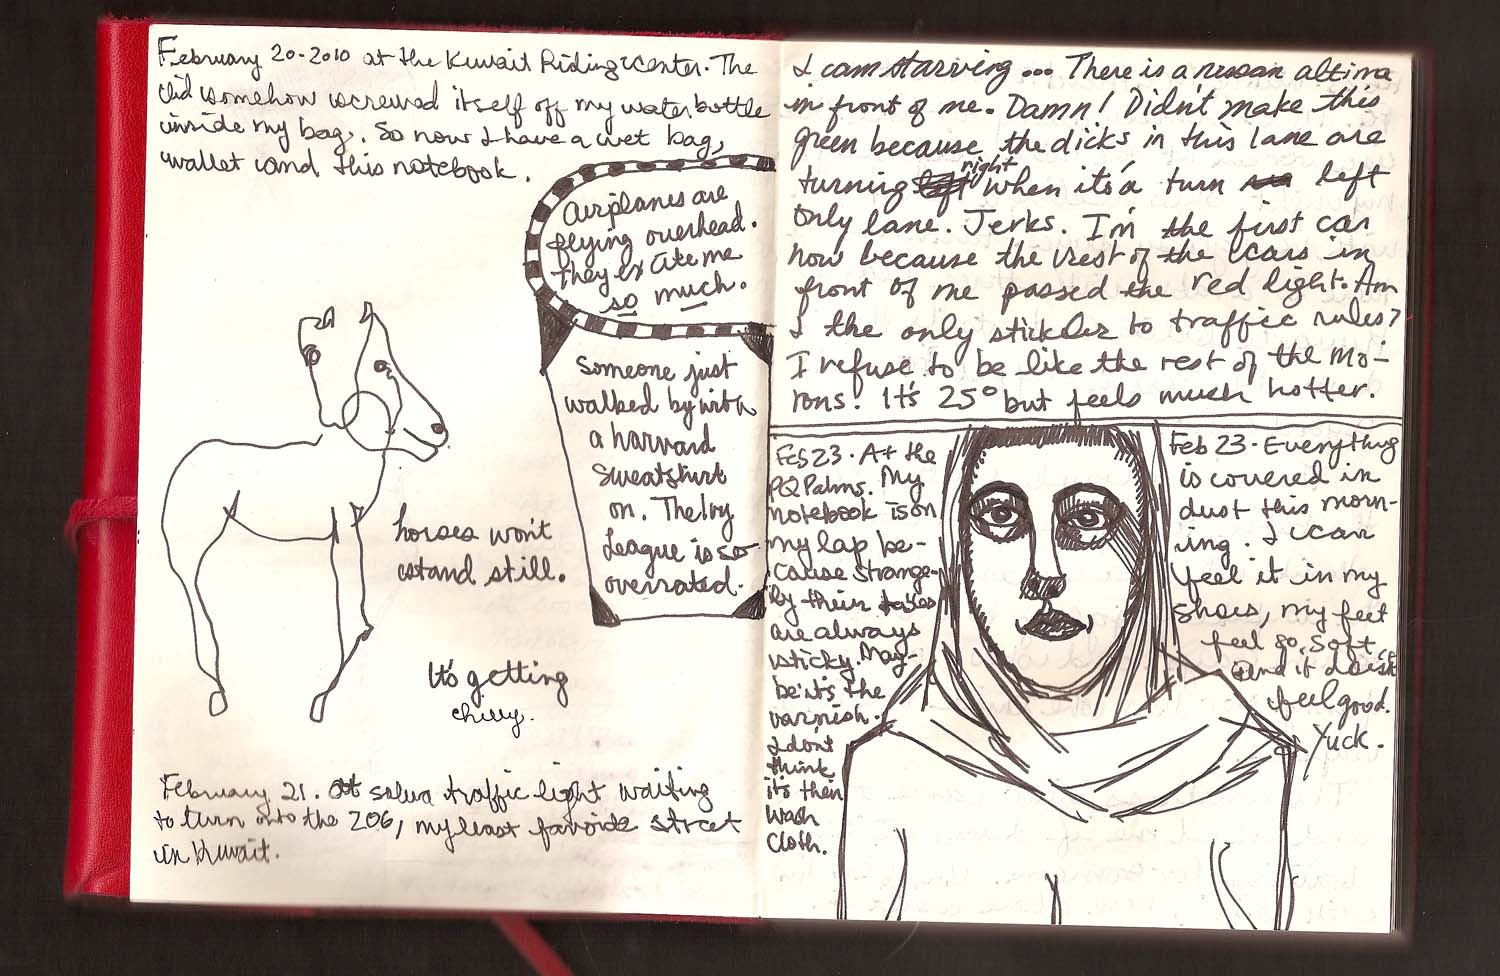 February 20-2010 at the Kuwait Riding Center. The
lid somehow screwed itself off my water bottle
inside my bag. So now I have a wet bag,
wallet and this notebook.
Airplanes are
flying overhead.
they excite me
so much.
Someone just
walked by with
a harvard
sweatshirt
on. The Ivy
League is so
overrated.
horses won't
stand still.
It's getting
chilly.
February 21. At salwa traffic light waiting
to turn onto the 206, my least favorite street
in Kuwait.
I am starving... There is a nissan altima
in front of me. Damn! Didn't make this
green because the dicks in this lane are
turning right when it's a turn left
only lane. Jerks. I'm the first car
now because the rest of the cars in
front of me passed the red light. Am
I the only stickler to traffic rules?
I refuse to be like the rest of the mo-
rons. It's 25° but feels much hotter.
Feb 23. At the
PQ Palms. My
notebook is on
my lap be-
cause strange-
ly their tables
are always
sticky. May-
be it's the
varnish.
I don't
think
it's their
wash
cloth.
Feb 23 - Everything
is covered in
dust this morn-
ing. I can
feel it in my
shoes, my feet
feel so soft
and it doesn't
feel good.
Yuck.